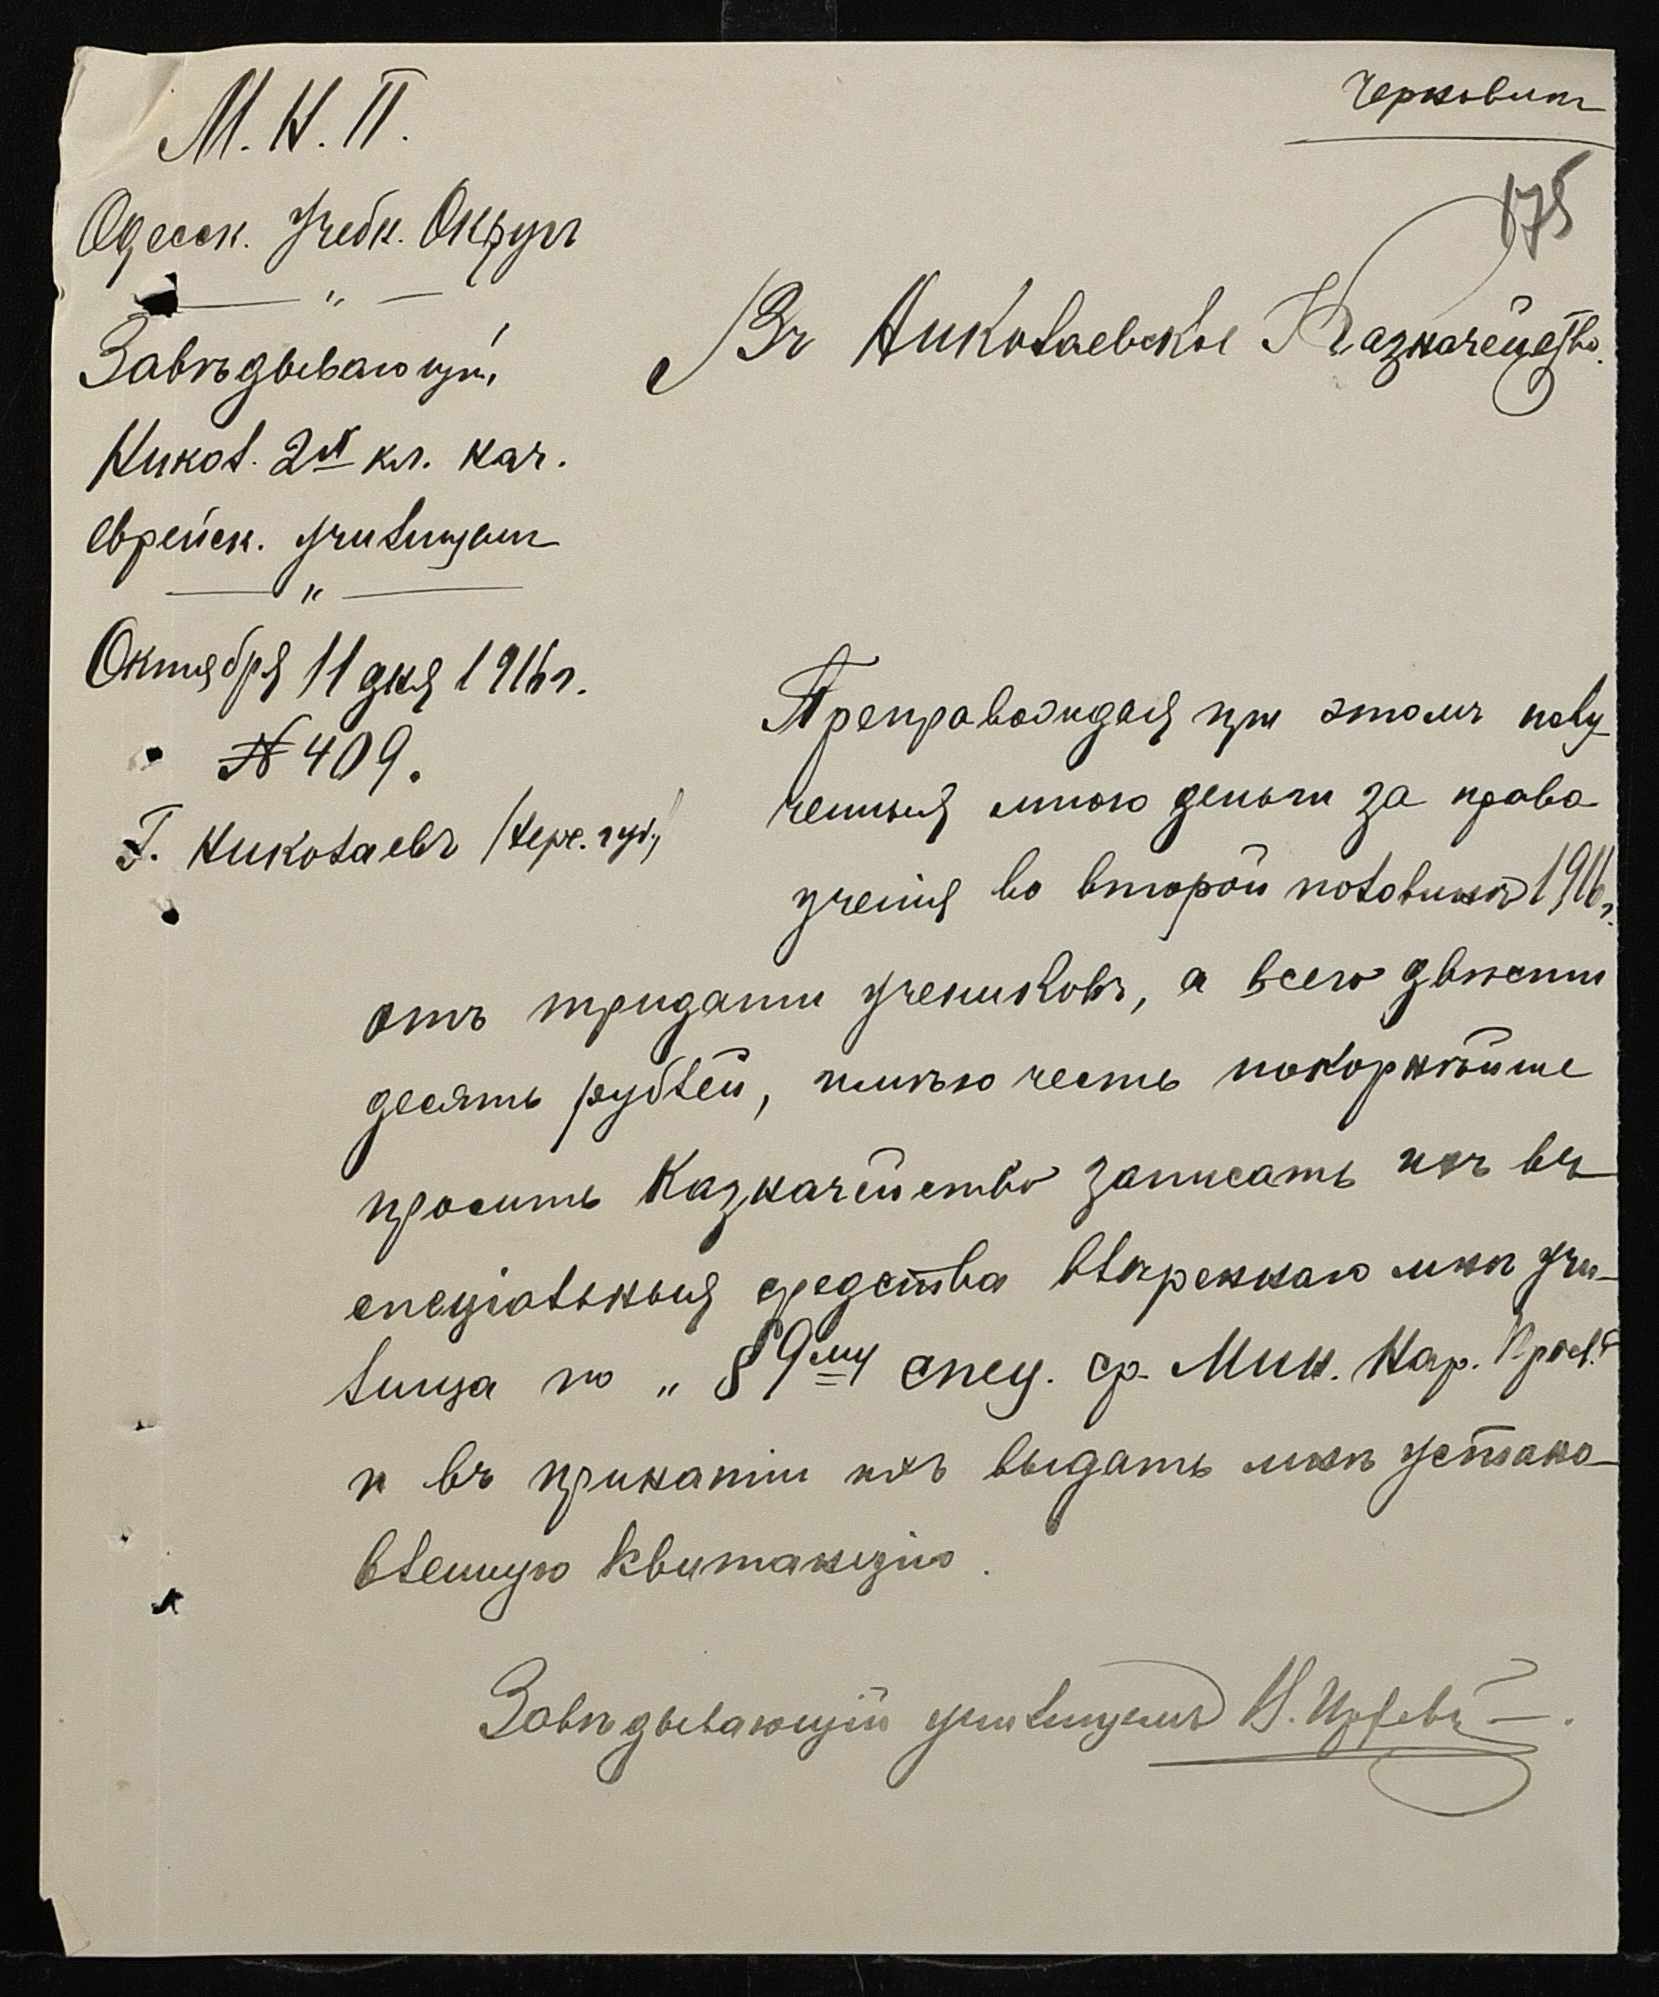 М. Н. П.
Одесск. Учебн. Округъ
Завѣдывающій
Никол. 2й кл. нач.
еврейск. училищемъ
Октября 11 дня 1916 г.
№ 409.
Г. Николаевъ (Херс. губ.)
Черновикъ
175
Въ Николаевское Казначейство.
Препровождая при этомъ полу-
ченныя мною деньги за право
ученія во второй половинѣ 1916 г.
отъ тридцати учениковъ, а всего двѣсти
десять рублей, имѣю честь покорнѣйше
просить Казначейство записать ихъ въ
спеціальныя средства ввѣреннаго мнѣ учи-
лища по „ §9му спец. ср. Мин. Нар. Просв.
и въ принятіи ихъ выдать мнѣ устано-
вленную квитанцію.
Завѣдывающій училищемъ Н.